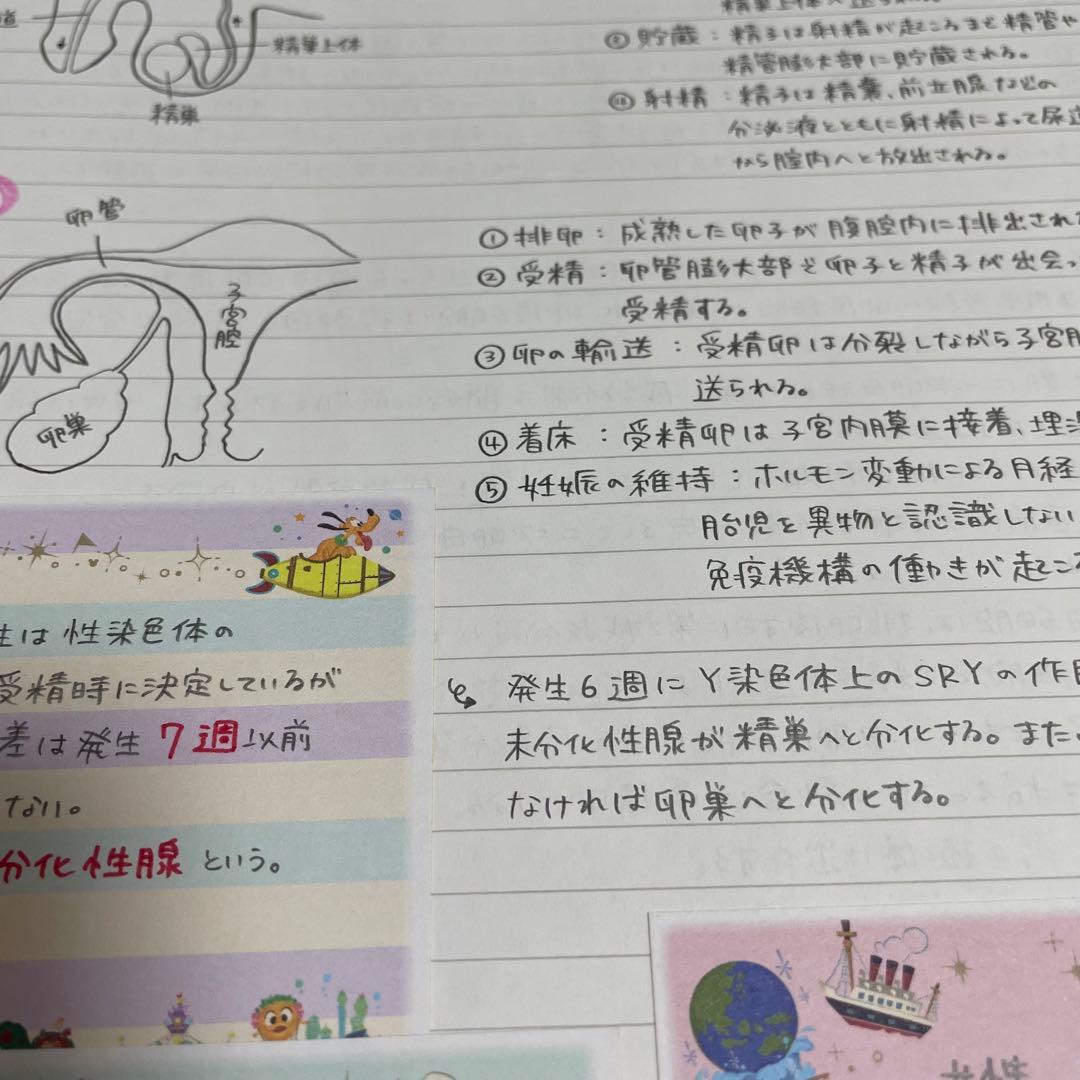 道
精巣上体
精巣
精巣上体へ送られる。
⑨ 貯蔵：精子は射精が起こるまで精管や
精管膨大部に貯蔵される。
⑩ 射精：精子は精嚢、前立腺などの
分泌液とともに射精によって尿道
から腟内へと放出される。
卵管
子宮腔
卵巣
① 排卵：成熟した卵子が腹腔内に排出され
② 受精：卵管膨大部で卵子と精子が出会っ
受精する。
③ 卵の輸送：受精卵は分裂しながら子宮
送られる。
④ 着床：受精卵は子宮内膜に接着、埋
⑤ 妊娠の維持：ホルモン変動による月経
胎児を異物と認識しない
免疫機構の働きが起こ
性は性染色体の
受精時に決定しているが
差は発生7週以前
ない。
分化性腺という。
↪ 発生6週にY染色体上のSRYの作用
未分化性腺が精巣へと分化する。また、
なければ卵巣へと分化する。